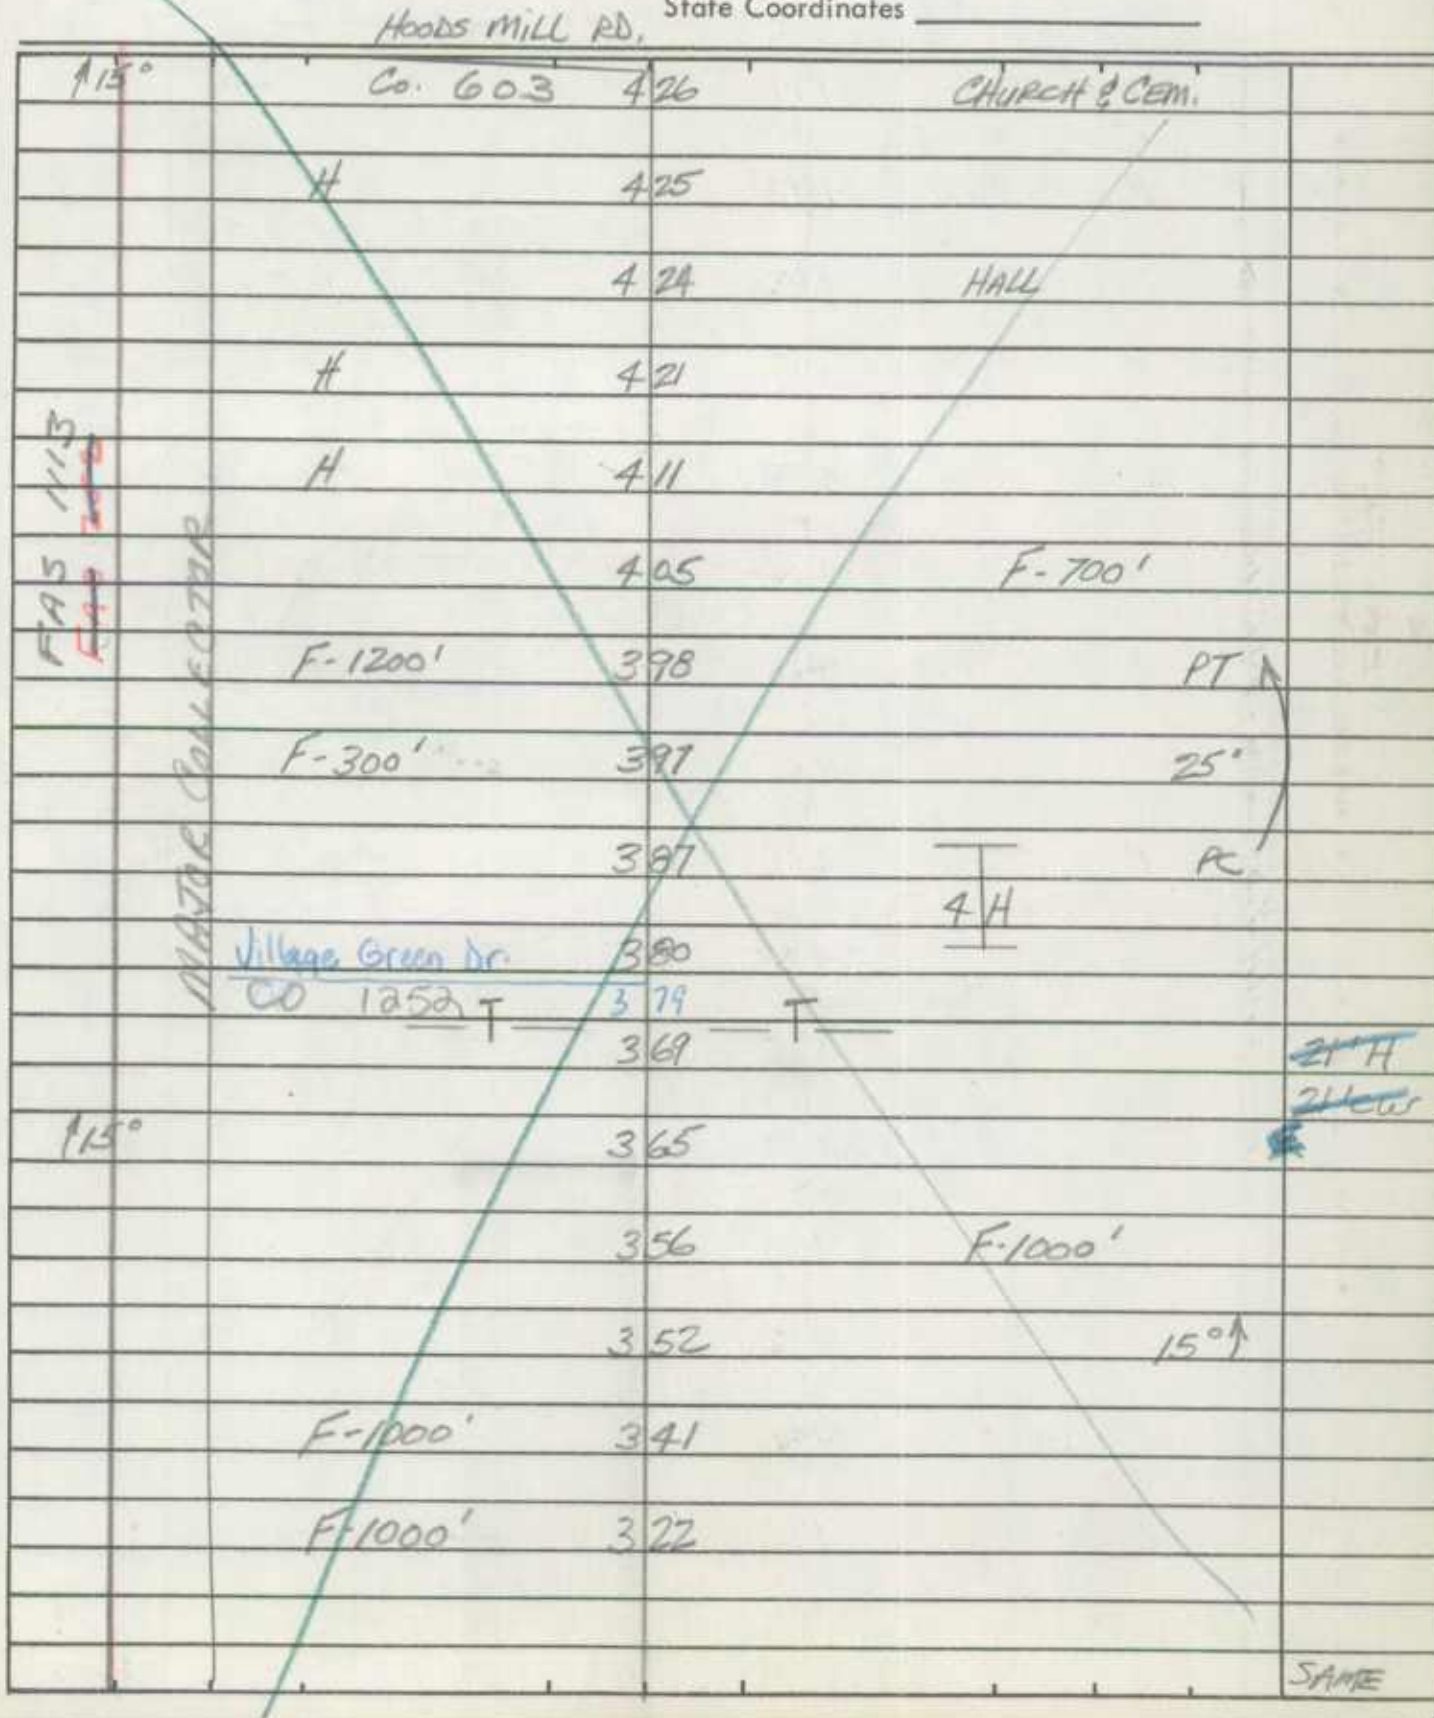 State Coordinates
HOODS MILL RD.
↑15° Co. 603 426 CHURCH & CEM.
H 425
424 HALL
H 421
H 411
405 F-700'
F-1200' 398 PT
F-300' 397 25°
387 PC
4 H
Village Green Dr. 380
CO 1252 379
T T
369
↑15° 365
356 F-1000'
352 15°↑
F-1000' 341
F-1000' 322
SAME
FAS 1113
MAJOR COLLECTOR